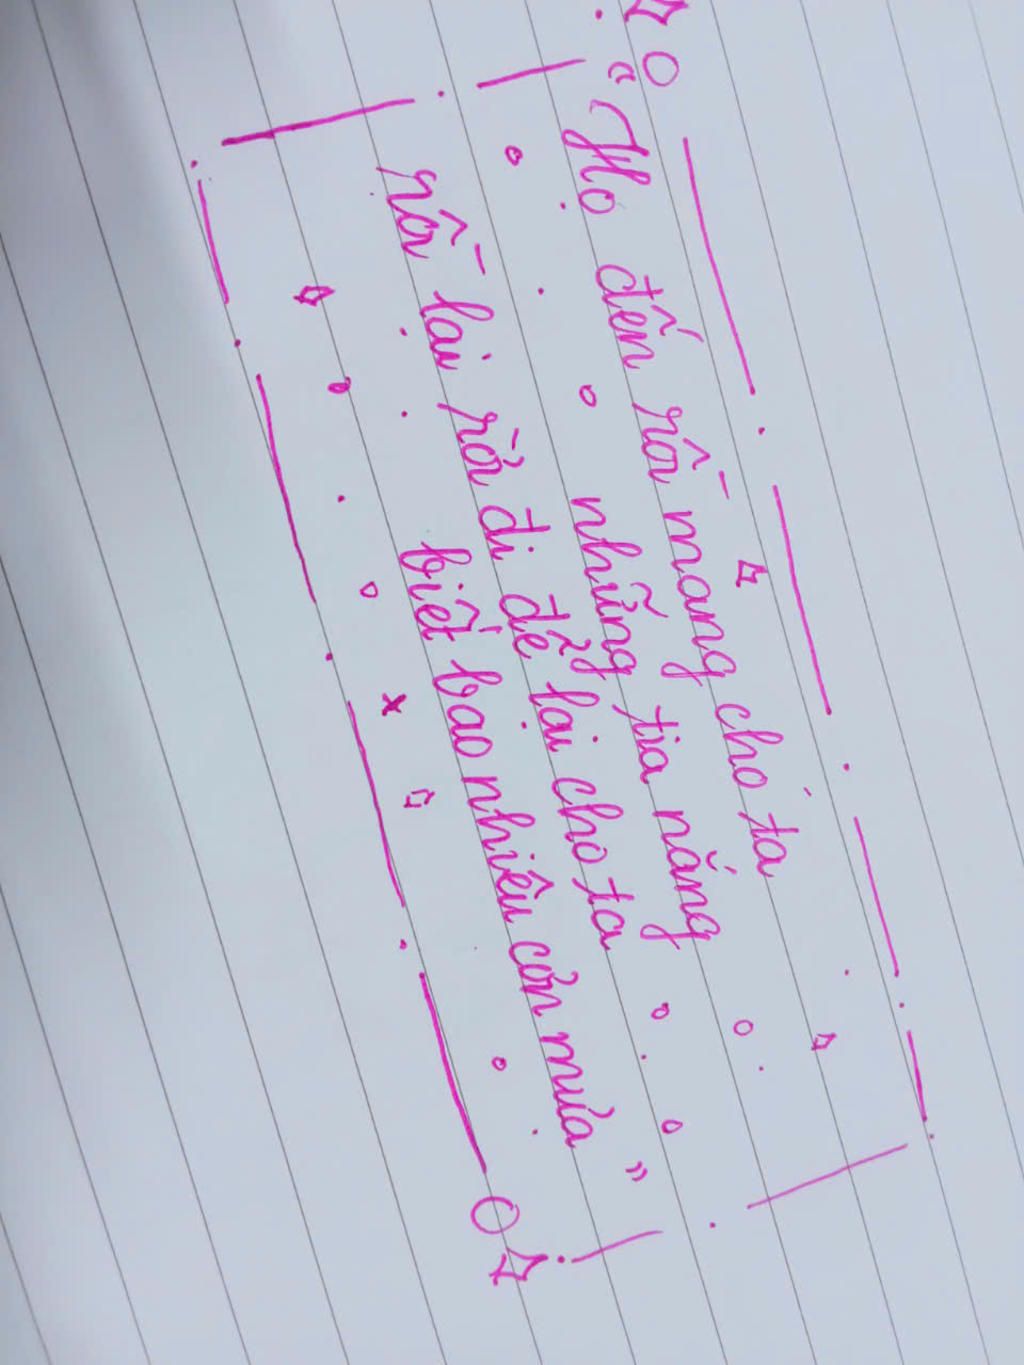 “Họ đến rồi mang cho ta
những tia nắng
rồi lại rời đi để lại cho ta
biết bao nhiêu cơn mưa”